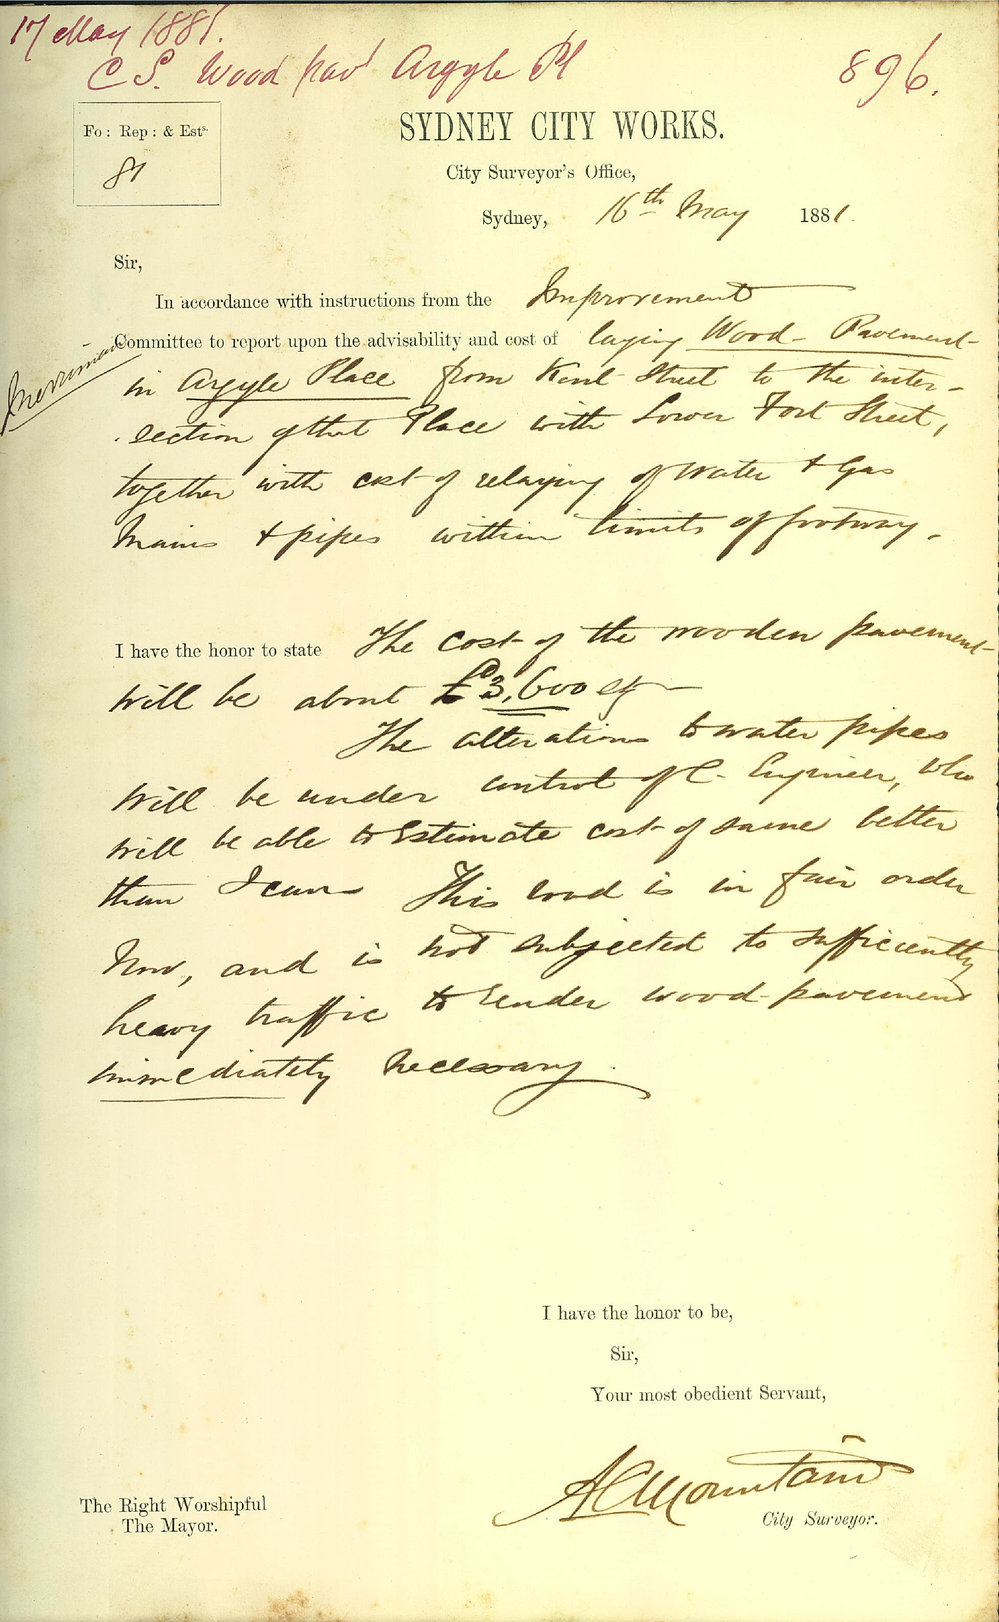 17 May 1881.
C S. Wood pav' Argyle Pl
896.
Fo: Rep: & Ests.
81
SYDNEY CITY WORKS.
City Surveyor's Office,
Sydney, 16th May 1881.
Sir,
In accordance with instructions from the Improvement
Committee to report upon the advisability and cost of laying Wood-Pavement
Merriman
in Argyle Place from Kent Street to the inter-
section of that Place with Lower Fort Street,
together with cost of relaying of Water & Gas
Mains & pipes within limits of footway.
I have the honor to state The cost of the wooden pavement
will be about £3,600
The alterations to water pipes
will be under control of C. Engineer, who
will be able to Estimate cost of same better
than I can This road is in fair order
Now, and is not subjected to sufficiently
heavy traffic to render wood-pavement
immediately necessary.
I have the honor to be,
Sir,
Your most obedient Servant,
A C Mountain
City Surveyor.
The Right Worshipful
The Mayor.